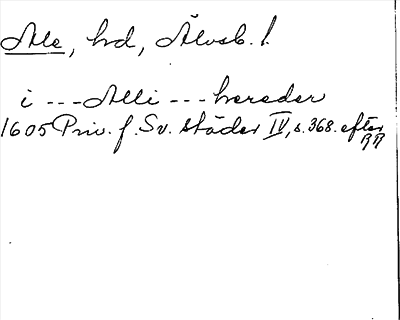 Ale, hd, Älvsb. l.
i --- Alli --- hereder
1605 Priv. f. Sv. städer IV, s. 368. efter
RR